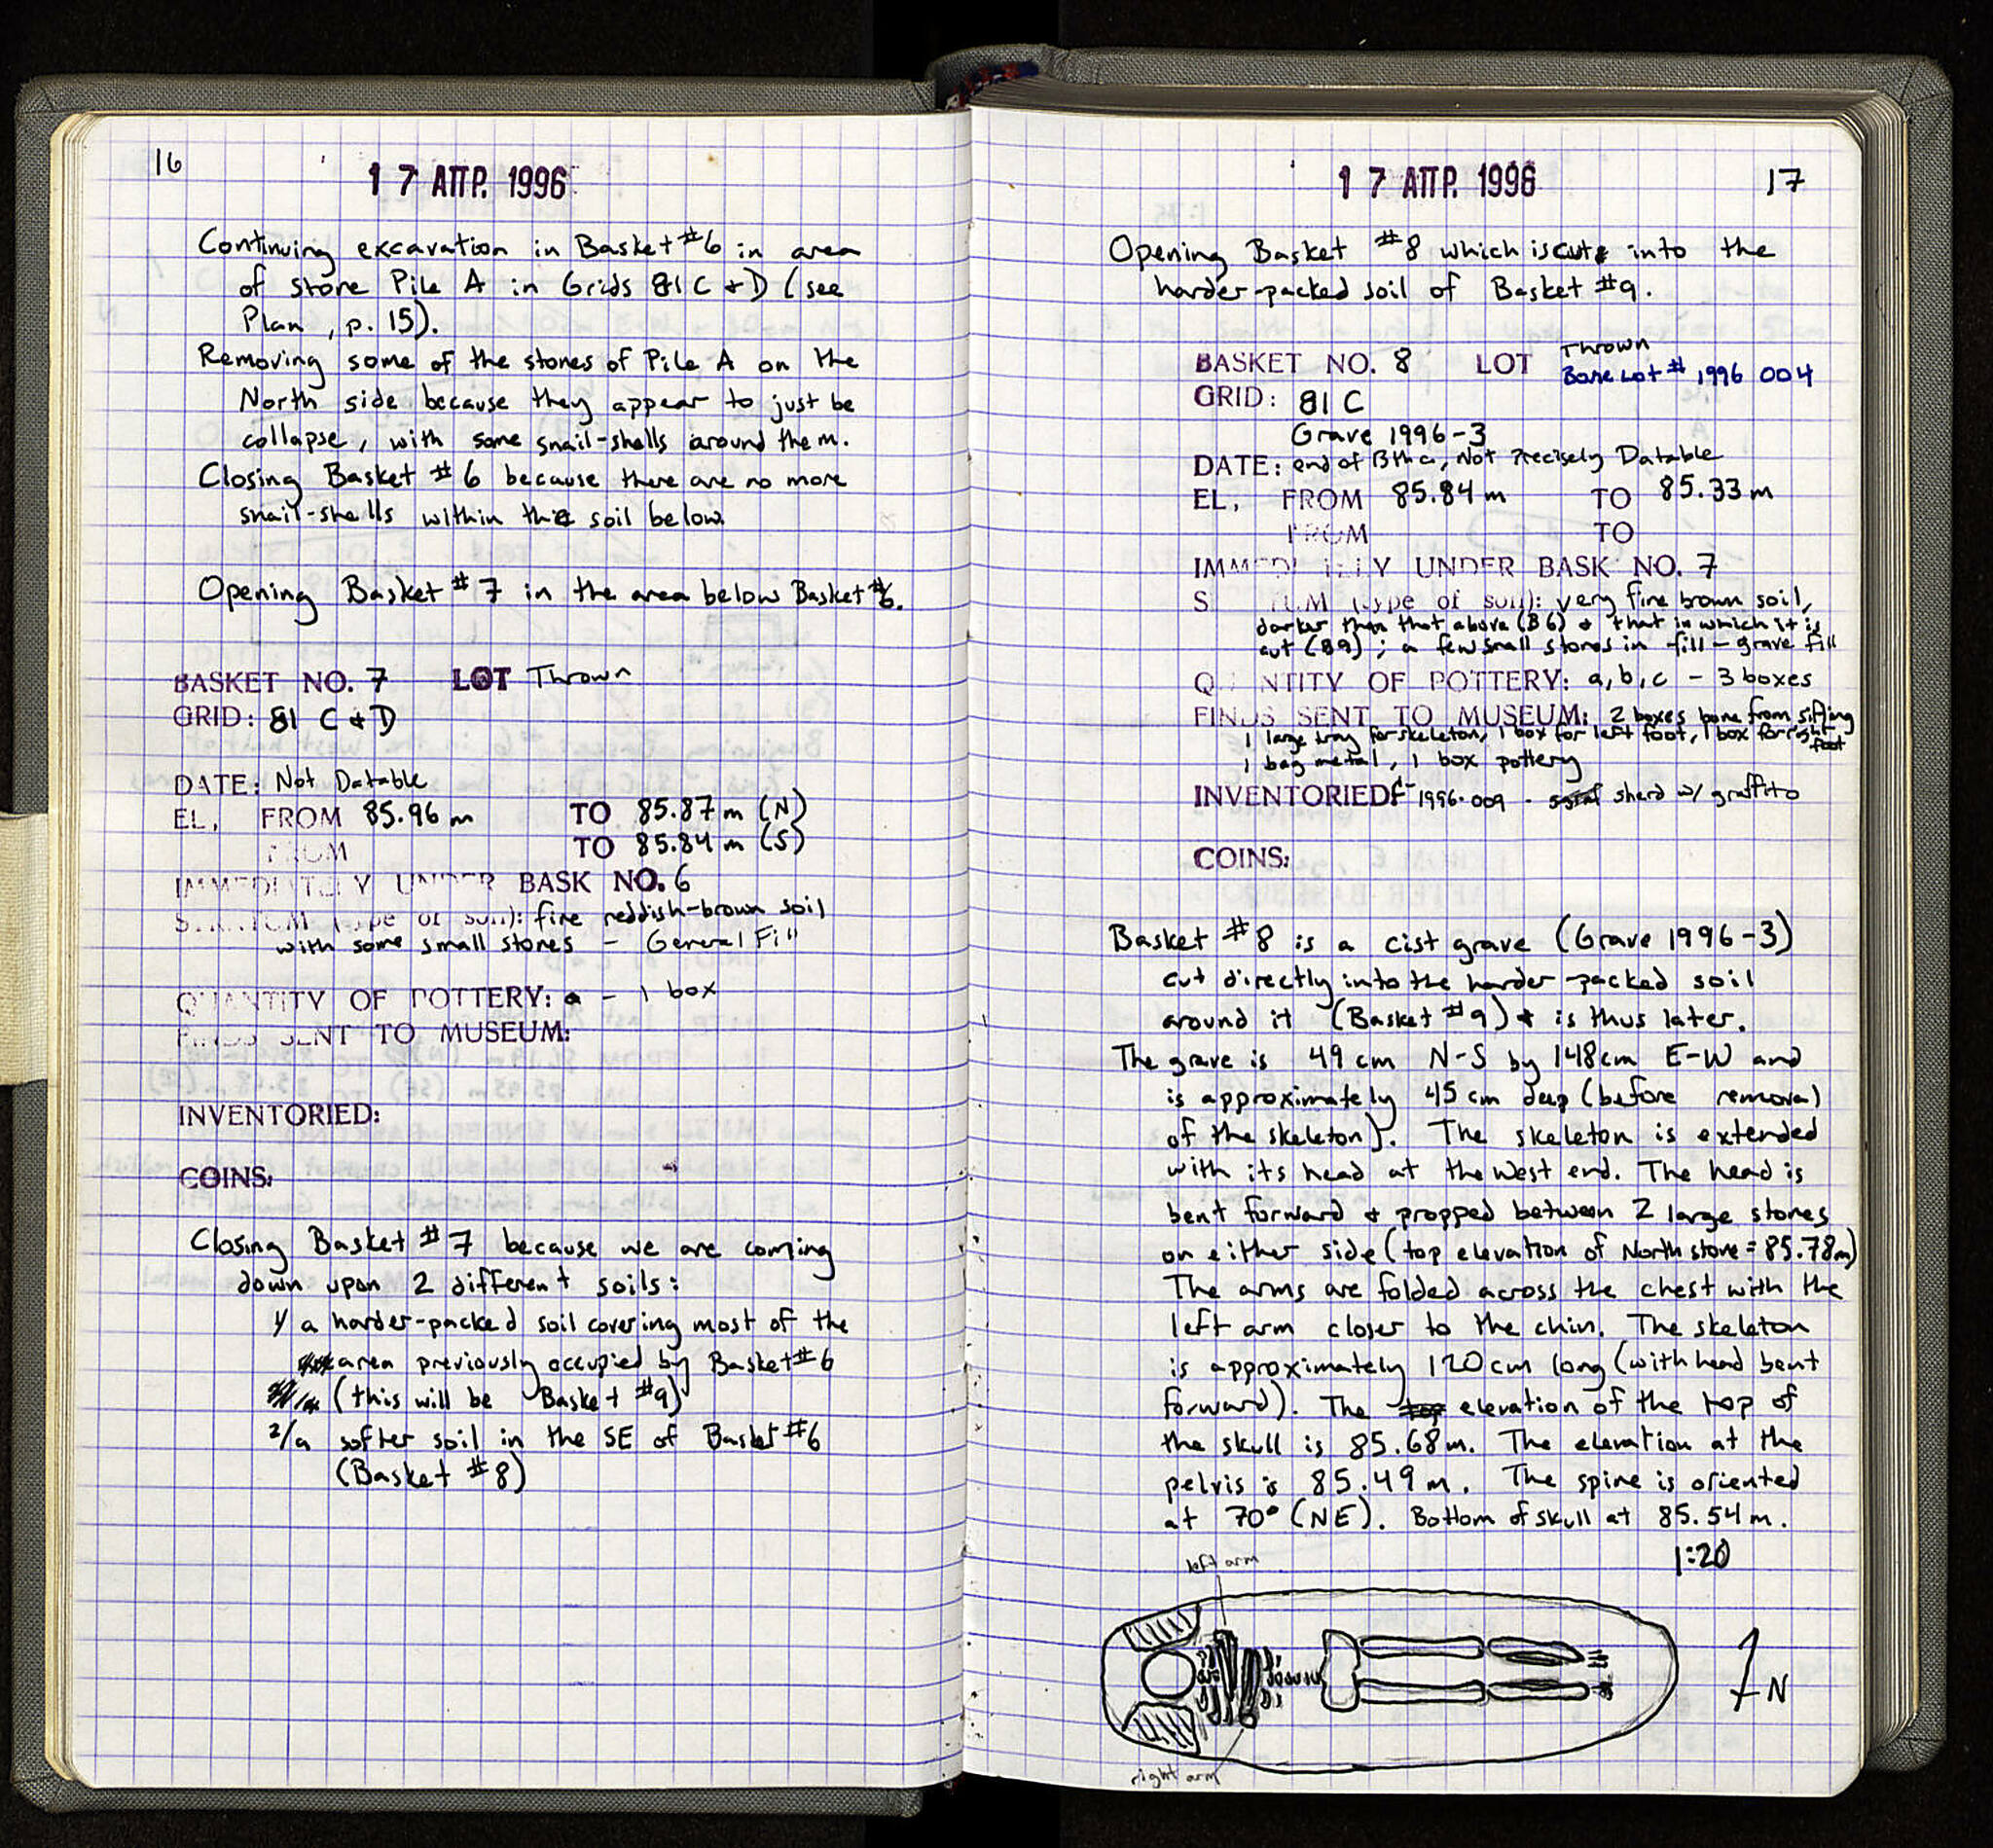 16
17 ΑΠΡ. 1996
Continuing excavation in Basket #6 in area
of stone Pile A in Grids 81 C + D (see
Plan, p. 15).
Removing some of the stones of Pile A on the
North side because they appear to just be
collapse, with some snail-shells around them.
Closing Basket #6 because there are no more
snail-shells within the soil below.
Opening Basket #7 in the area below Basket #6.
BASKET NO. 7 LOT Thrown
GRID: 81 C + D
DATE: Not Datable
EL, FROM 85.96 m TO 85.87 m (N)
FROM TO 85.84 m (S)
IMMEDIATELY UNDER BASK NO. 6
STRATUM (type of soil): fine reddish-brown soil
with some small stones - General Fill
QUANTITY OF POTTERY: a - 1 box
FINDS SENT TO MUSEUM:
INVENTORIED:
COINS:
Closing Basket #7 because we are coming
down upon 2 different soils:
1/ a harder-packed soil covering most of the
area previously occupied by Basket #6
(this will be Basket #9)
2/ a softer soil in the SE of Basket #6
(Basket #8)
17 ΑΠΡ. 1996
17
Opening Basket #8 which is cut into the
harder-packed soil of Basket #9.
BASKET NO. 8 LOT Thrown
Bone Lot # 1996 004
GRID: 81 C
Grave 1996-3
DATE: end of 13th c, Not Precisely Datable
EL, FROM 85.84 m TO 85.33 m
FROM TO
IMMEDIATELY UNDER BASK NO. 7
STRATUM (type of soil): very fine brown soil,
darker than that above (B6) + that in which it is
cut (B9); a few small stones in fill - grave fill
QUANTITY OF POTTERY: a, b, c - 3 boxes
FINDS SENT TO MUSEUM: 2 boxes bone from sifting
1 large tray for skeleton, 1 box for left foot, 1 box for right foot
1 bag metal, 1 box pottery
INVENTORIED: 1996-009 - sherd w/ graffito
COINS:
Basket #8 is a cist grave (Grave 1996-3)
cut directly into the harder-packed soil
around it (Basket #9) + is thus later.
The grave is 49 cm N-S by 148 cm E-W and
is approximately 45 cm deep (before removal
of the skeleton). The skeleton is extended
with its head at the West end. The head is
bent forward + propped between 2 large stones
on either side (top elevation of North stone = 85.78m)
The arms are folded across the chest with the
left arm closer to the chin. The skeleton
is approximately 120 cm long (with head bent
forward). The top elevation of the top of
the skull is 85.68 m. The elevation at the
pelvis is 85.49 m. The spine is oriented
at 70° (NE). Bottom of skull at 85.54 m.
1:20
left arm
N
right arm